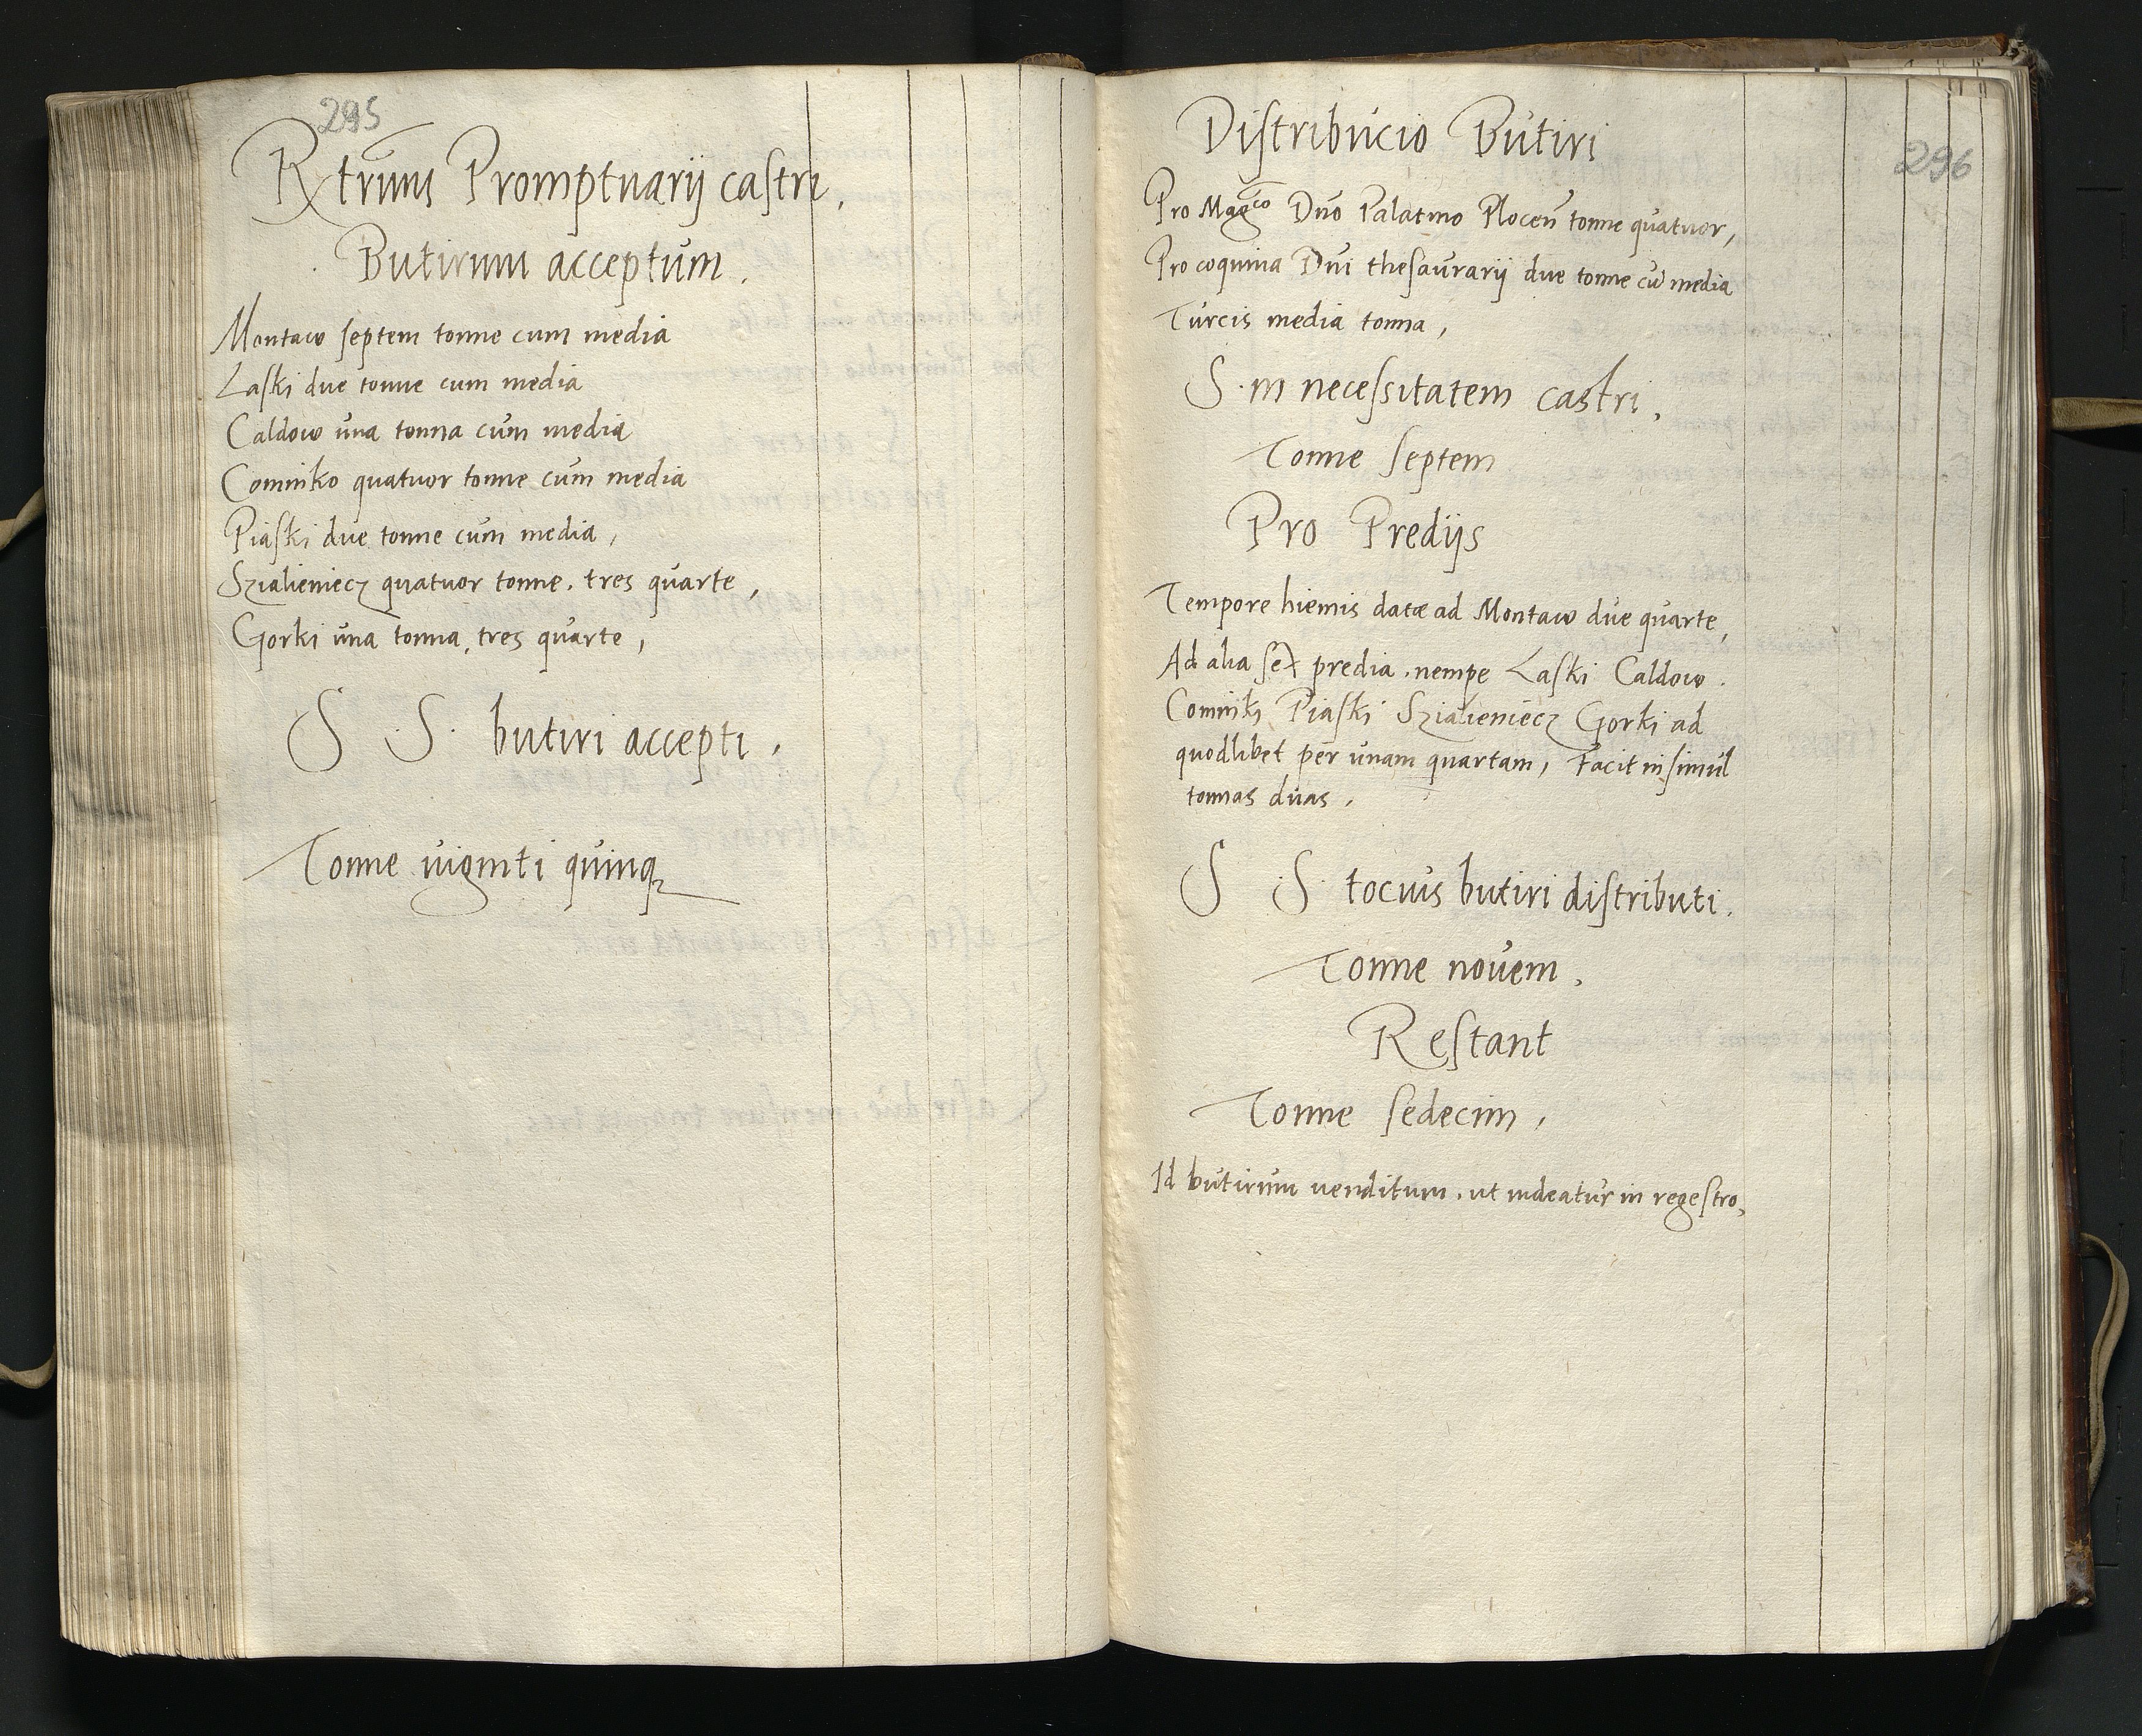 295
Rxtrum Promptuarij castri,
Butirum acceptum.
Montaw septem tonne cum media
Laski due tonne cum media
Caldow una tonna cum media
Comniko quatuor tonne cum media
Piaski due tonne cum media,
Szialieniecz quatuor tonne. tres quarte,
Gorki una tonna, tres quarte,
S S. butiri accepti,
Tonne viginti quinqȝ
296
Distribucio Butiri
Pro Magco Dno Palatino Plocen̄ tonne quatuor,
Pro coquina Dni thesaurarij due tonne cū media
Turcis media tonna,
S. in necessitatem castri,
Tonne septem
Pro Predijs
Tempore hiemis datæ ad Montaw due quarte,
Ad alia sex predia. nempe Laski Caldow.
Comniki Piaski Szialieniecz Gorki ad
quodlibet per unam quartam, Facit in simul
tonnas duas,
S S. tocius butiri distributi.
Tonne novem,
Restant
Tonne sedecim,
Id butirum venditum. ut videatur in regestro,